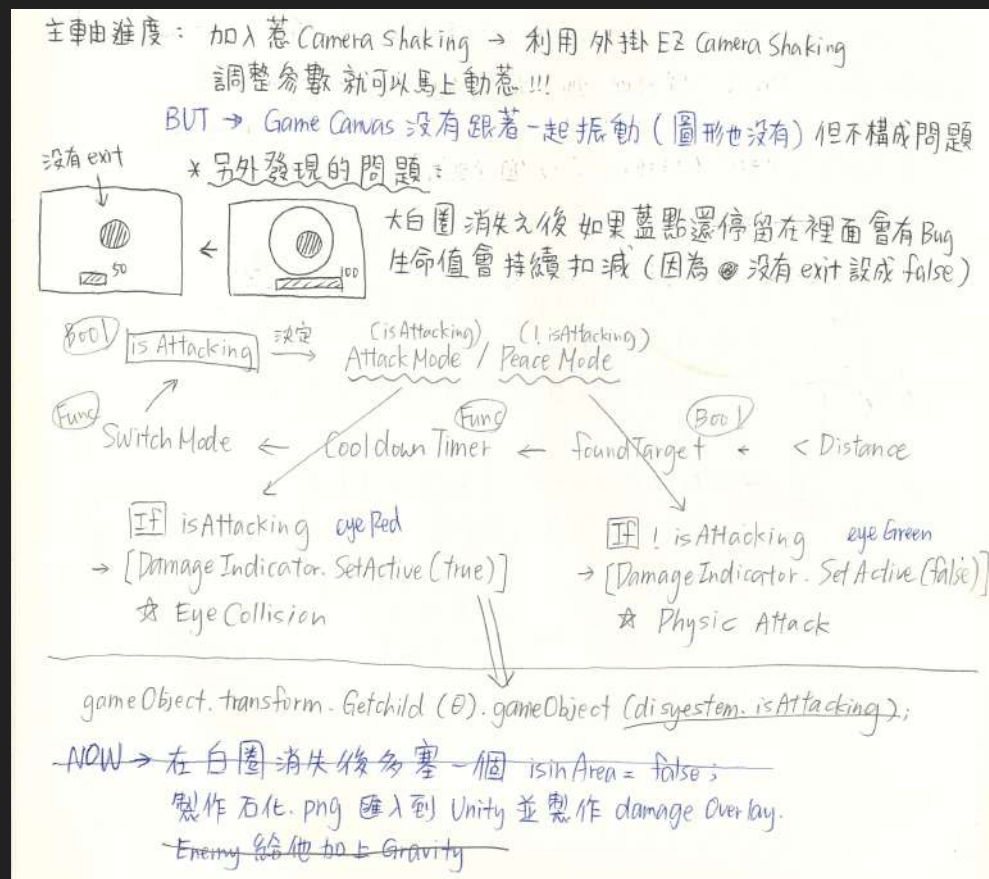 主軸進度： 加入惹 Camera Shaking → 利用 外掛 EZ Camera Shaking
調整參數 就可以馬上動惹!!!
BUT → Game Canvas 没有跟著一起振動 (圖形也没有) 但不構成問題
没有 exit
* 另外發現的問題：
50
100
大白圈 消失之後 如果藍點還停留在裡面會有Bug
生命值會 持續扣減 (因為 没有 exit 設成 false)
Bool
is Attacking 決定 → (isAttacking) Attack Mode / (! isAttacking) Peace Mode
Func Func Bool
Switch Mode ← Cooldown Timer ← foundTarget ← < Distance
If isAttacking eyeRed
→ [Damage Indicator. SetActive (true)]
☆ Eye Collision
If ! isAttacking eye Green
→ [Damage Indicator. Set Active (false)]
☆ Physic Attack
gameObject. transform. Getchild (0). gameObject (disyestem. isAttacking);
NOW → 在白圈消失後多塞一個 isinArea = false;
製作石化.png 匯入到 Unity 並製作 damage Overlay.
Enemy 給他加上 Gravity